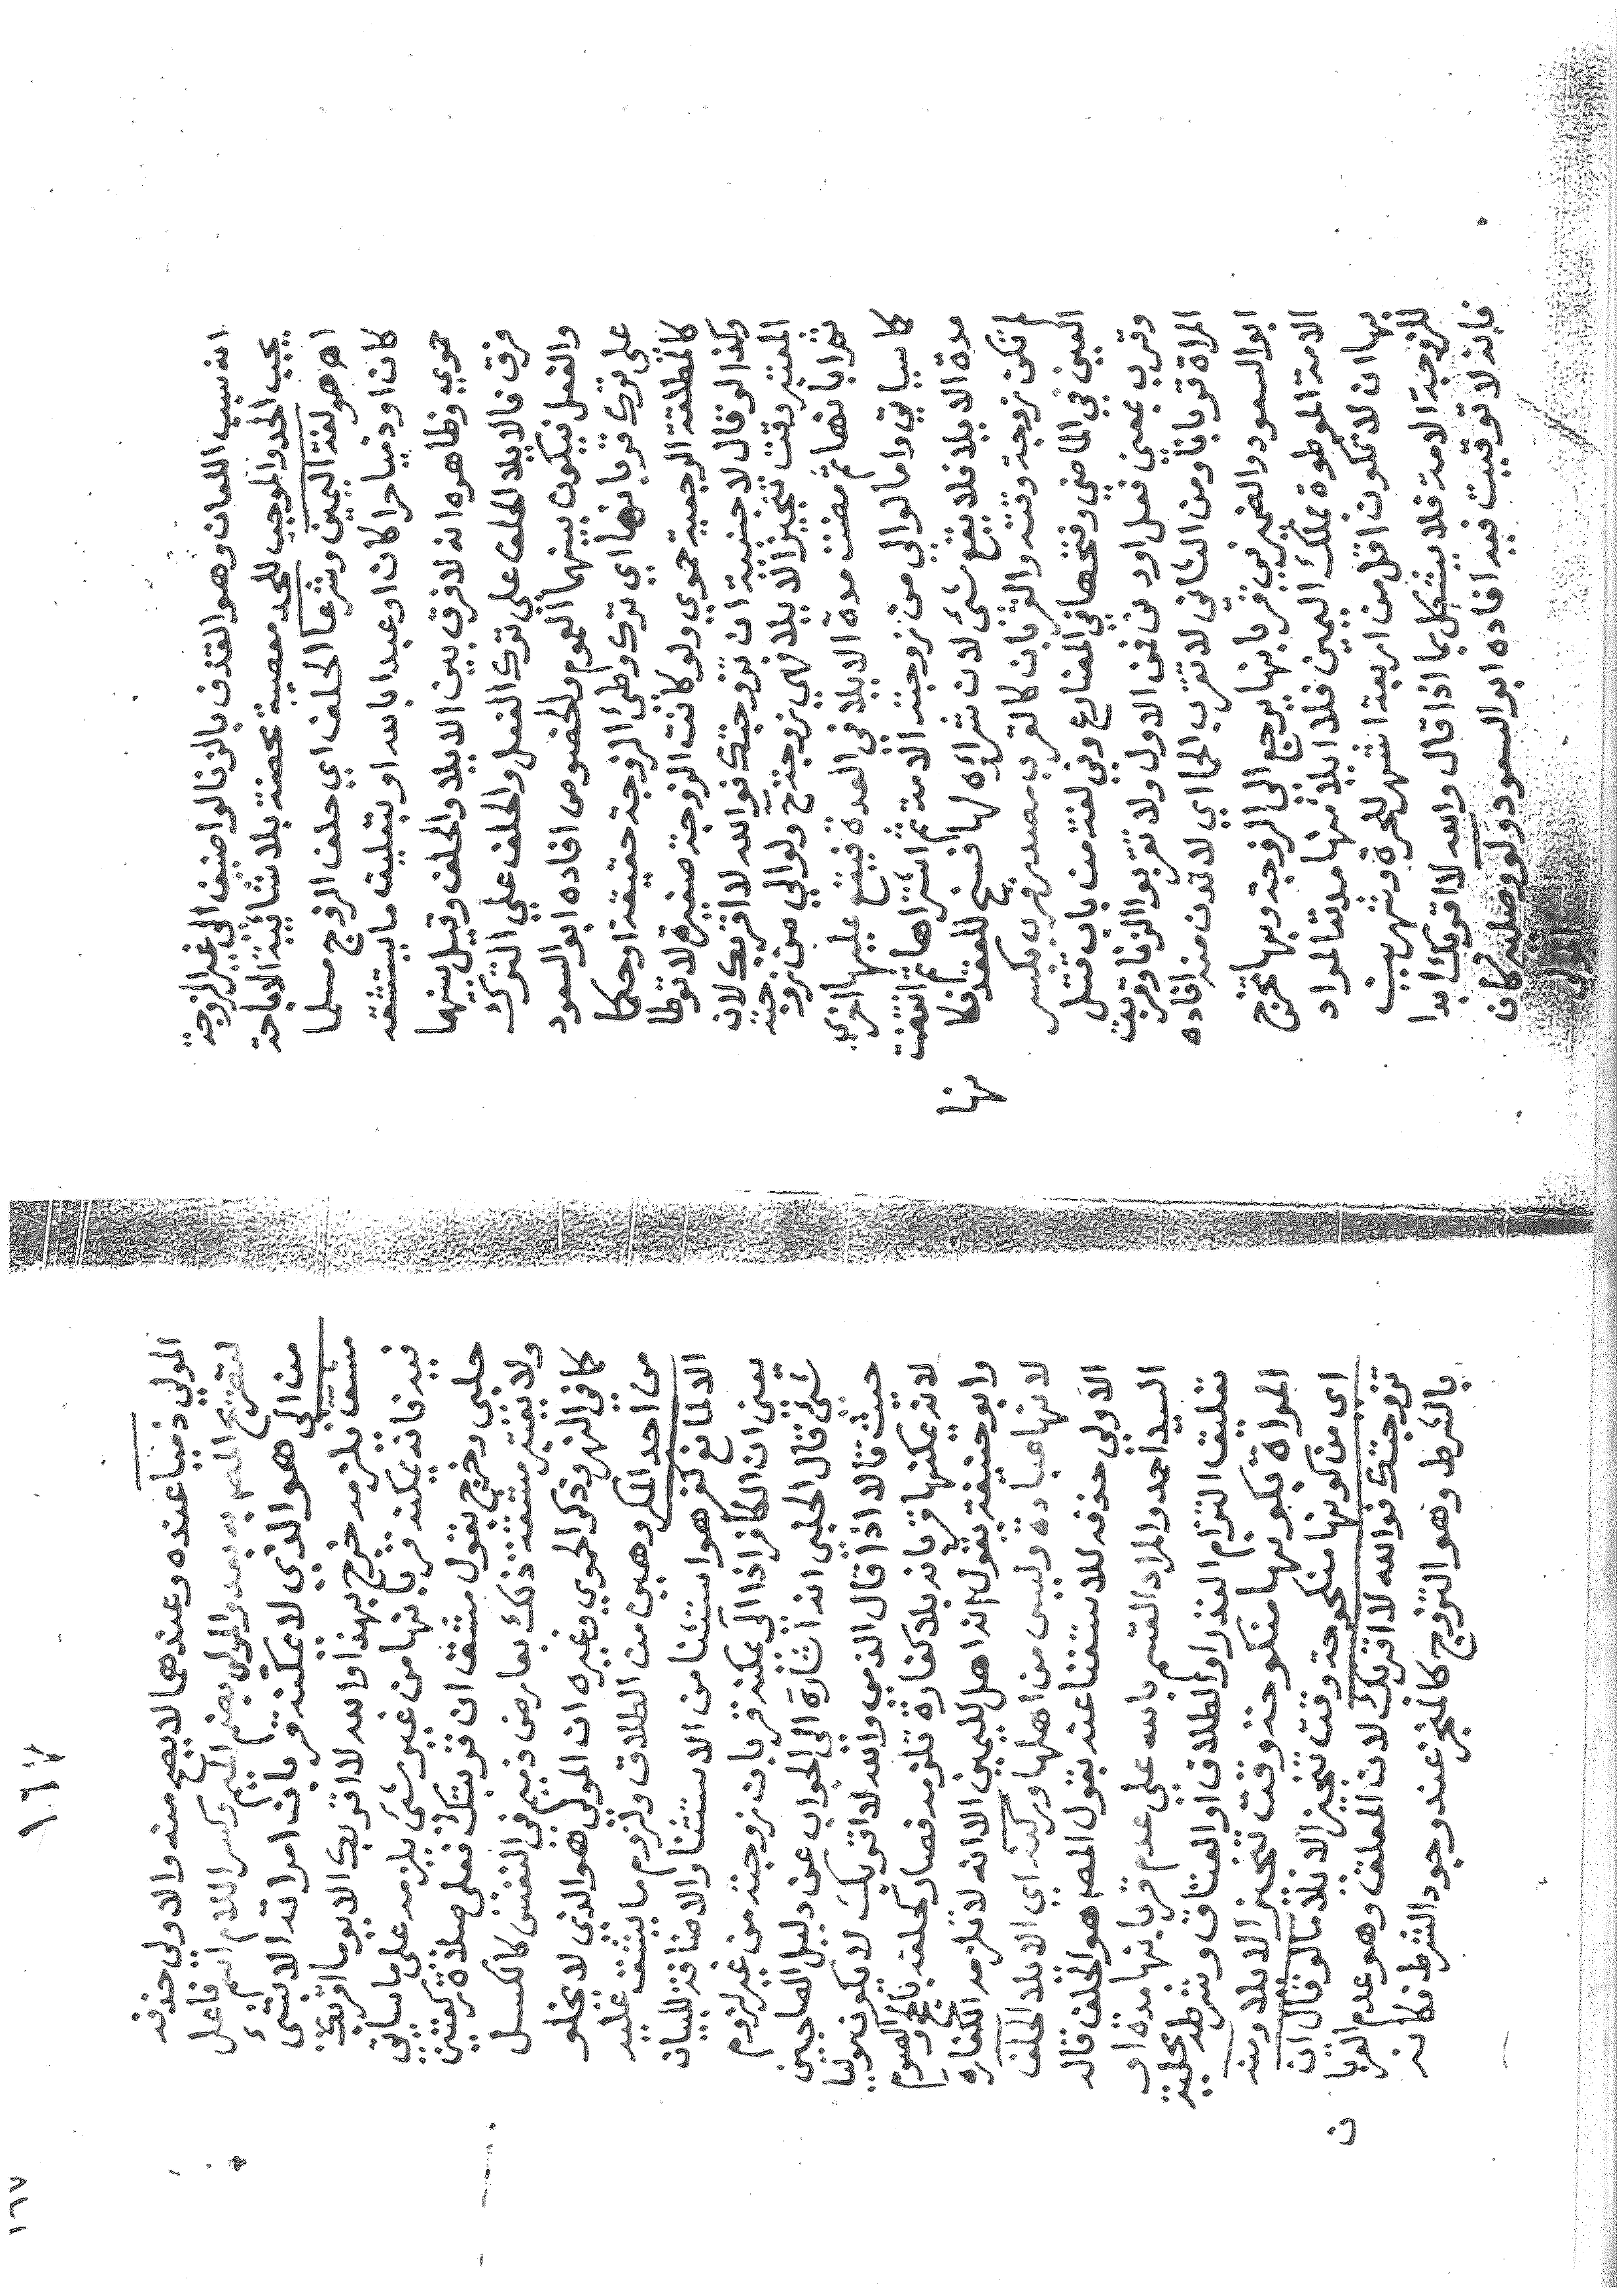 انه سبب اللعان وهو القذف بالزنا لو اضيف الى غير الزوجة
يجب الحد والموجب للحد معصية محضة بلا شائبة الاباحة
اهـ هو لغة اليمين وشرعا الحلف اي حلف الزوج مسلما
كان او ذميا حرا كان او عبدا بالله او بتعليق ما يستشقه
حموي وظاهره انه لا فرق بين الايلا والحلف وقيل بينهما
فرق فالايلا الحلف على ترك الفعل والحلف على الترك
والفعل فيكون بينهما العموم والخصوص افاده ابو السعود
على ترك قربانها اي ترك وطئ الزوجة حقيقة او حكما
كالمطلقة الرجعية حموي ولو كانت الزوجة صغيرة لا توطا
وكذا لو قال لاجنبية ان تزوجتك فوالله لا اقربك لان
المعتبر وقت تنجيز الايلا فهي زوجته ح ولو الى من زوجته
ثم ابانها ثم مضت مدة الايلا في العدة فيقع عليها اخرى
كما سياتي واما لو الى من زوجته الامة ثم اشتراها ثم انقضت
مدة الايلا فلا يقع شئ لان شراؤه لها فسخ للعقد فكانها
لم تكن زوجة وقته والقربان كالقرب مصدر قرب بكسر
العين في الماضي وفتحها في المضارع وفي لغة من باب قتل
وقرب بمعنى فعل او دنى فمن الاول ولا تقربوا الزنا وقربت
المراة قربانا ومن الثاني لا تقرب الحما اي لا تدن منه افاده
ابو السعود والضمير في قربانها يرجع الى الزوجة وبها تخرج
الامة الموطوة بملك اليمين فلا ايلا منها مدته المراد
بها ان لا تكون اقل من اربعة اشهر للحرة وشهرين
للزوجة الامة فلا يشكل بما اذا قال والله لا اقربك ابدا
فانه لا توقيت فيه افاده ابو السعود ولو وصليه كان
المولى
١٦٧
المولى ذميا عنده وعندهما لا يصح منه والاولى حذفه
لتصريح المص به بعد والمولى بضم الميم وكسر اللام اسم فاعل
من الى هو الذي لا يمكنه قربان امراته الا بشئ
مشق يلزمه خرج بهذا والله لا اقربك الا يوما اقربك
فيه فانه يمكنه قربانها من غير شئ يلزمه على ما سياتي
حلبى وخرج بقوله مشق ان قربتك فعلي صلاة ركعتين
ولا يعتبر مشقة ذلك بعارض ذميم في النفس كالكسل
كما في النهر وذكر الحموي وغيره ان المولى هو الذي لا يخلو
من احد المكروهين من الطلاق ولزوم ما يشق عليه
الا لمانع كفر هو استثنا من الاستثنا والاضافة للبيان
يعني ان الكافر اذا الى يمكنه قربان زوجته من غير لزوم
شئ قال الحلبى انه اشارة الى الجواب عن دليل الصاحبين
حيث قالا اذا قال الذمي والله لا اقربك لا يكون موليا
لانه يمكنها قربانه بلا كفارة تلزمه فصار كحلفه بالحج والصوم
وابو حنيفة يقول انه اهل لليمين الا انه لا تلزمه الكفارة
لانها عبادة وليس من اهلها وركنه اي الايلا الحلف
الاولى حذفه للاستغنا عنه بقول المص هو الحلف قاله
السيد احمد والمراد القسم بالله على عدم قربانها مدة او
تعليق التزام النذر او الطلاق او العتاق وشرطه محلية
المراة بكونها منكوحة وقت تنجيز الايلا ومنه
اي من كونها منكوحة وقت تنجيز الايلا ما لو قال ان
تزوجتك فوالله لا اقربك لان المعلق وهو عدم القربان
بالشرط وهو التزوج كالمنجز عند وجود الشرط فكانه
١٦٧